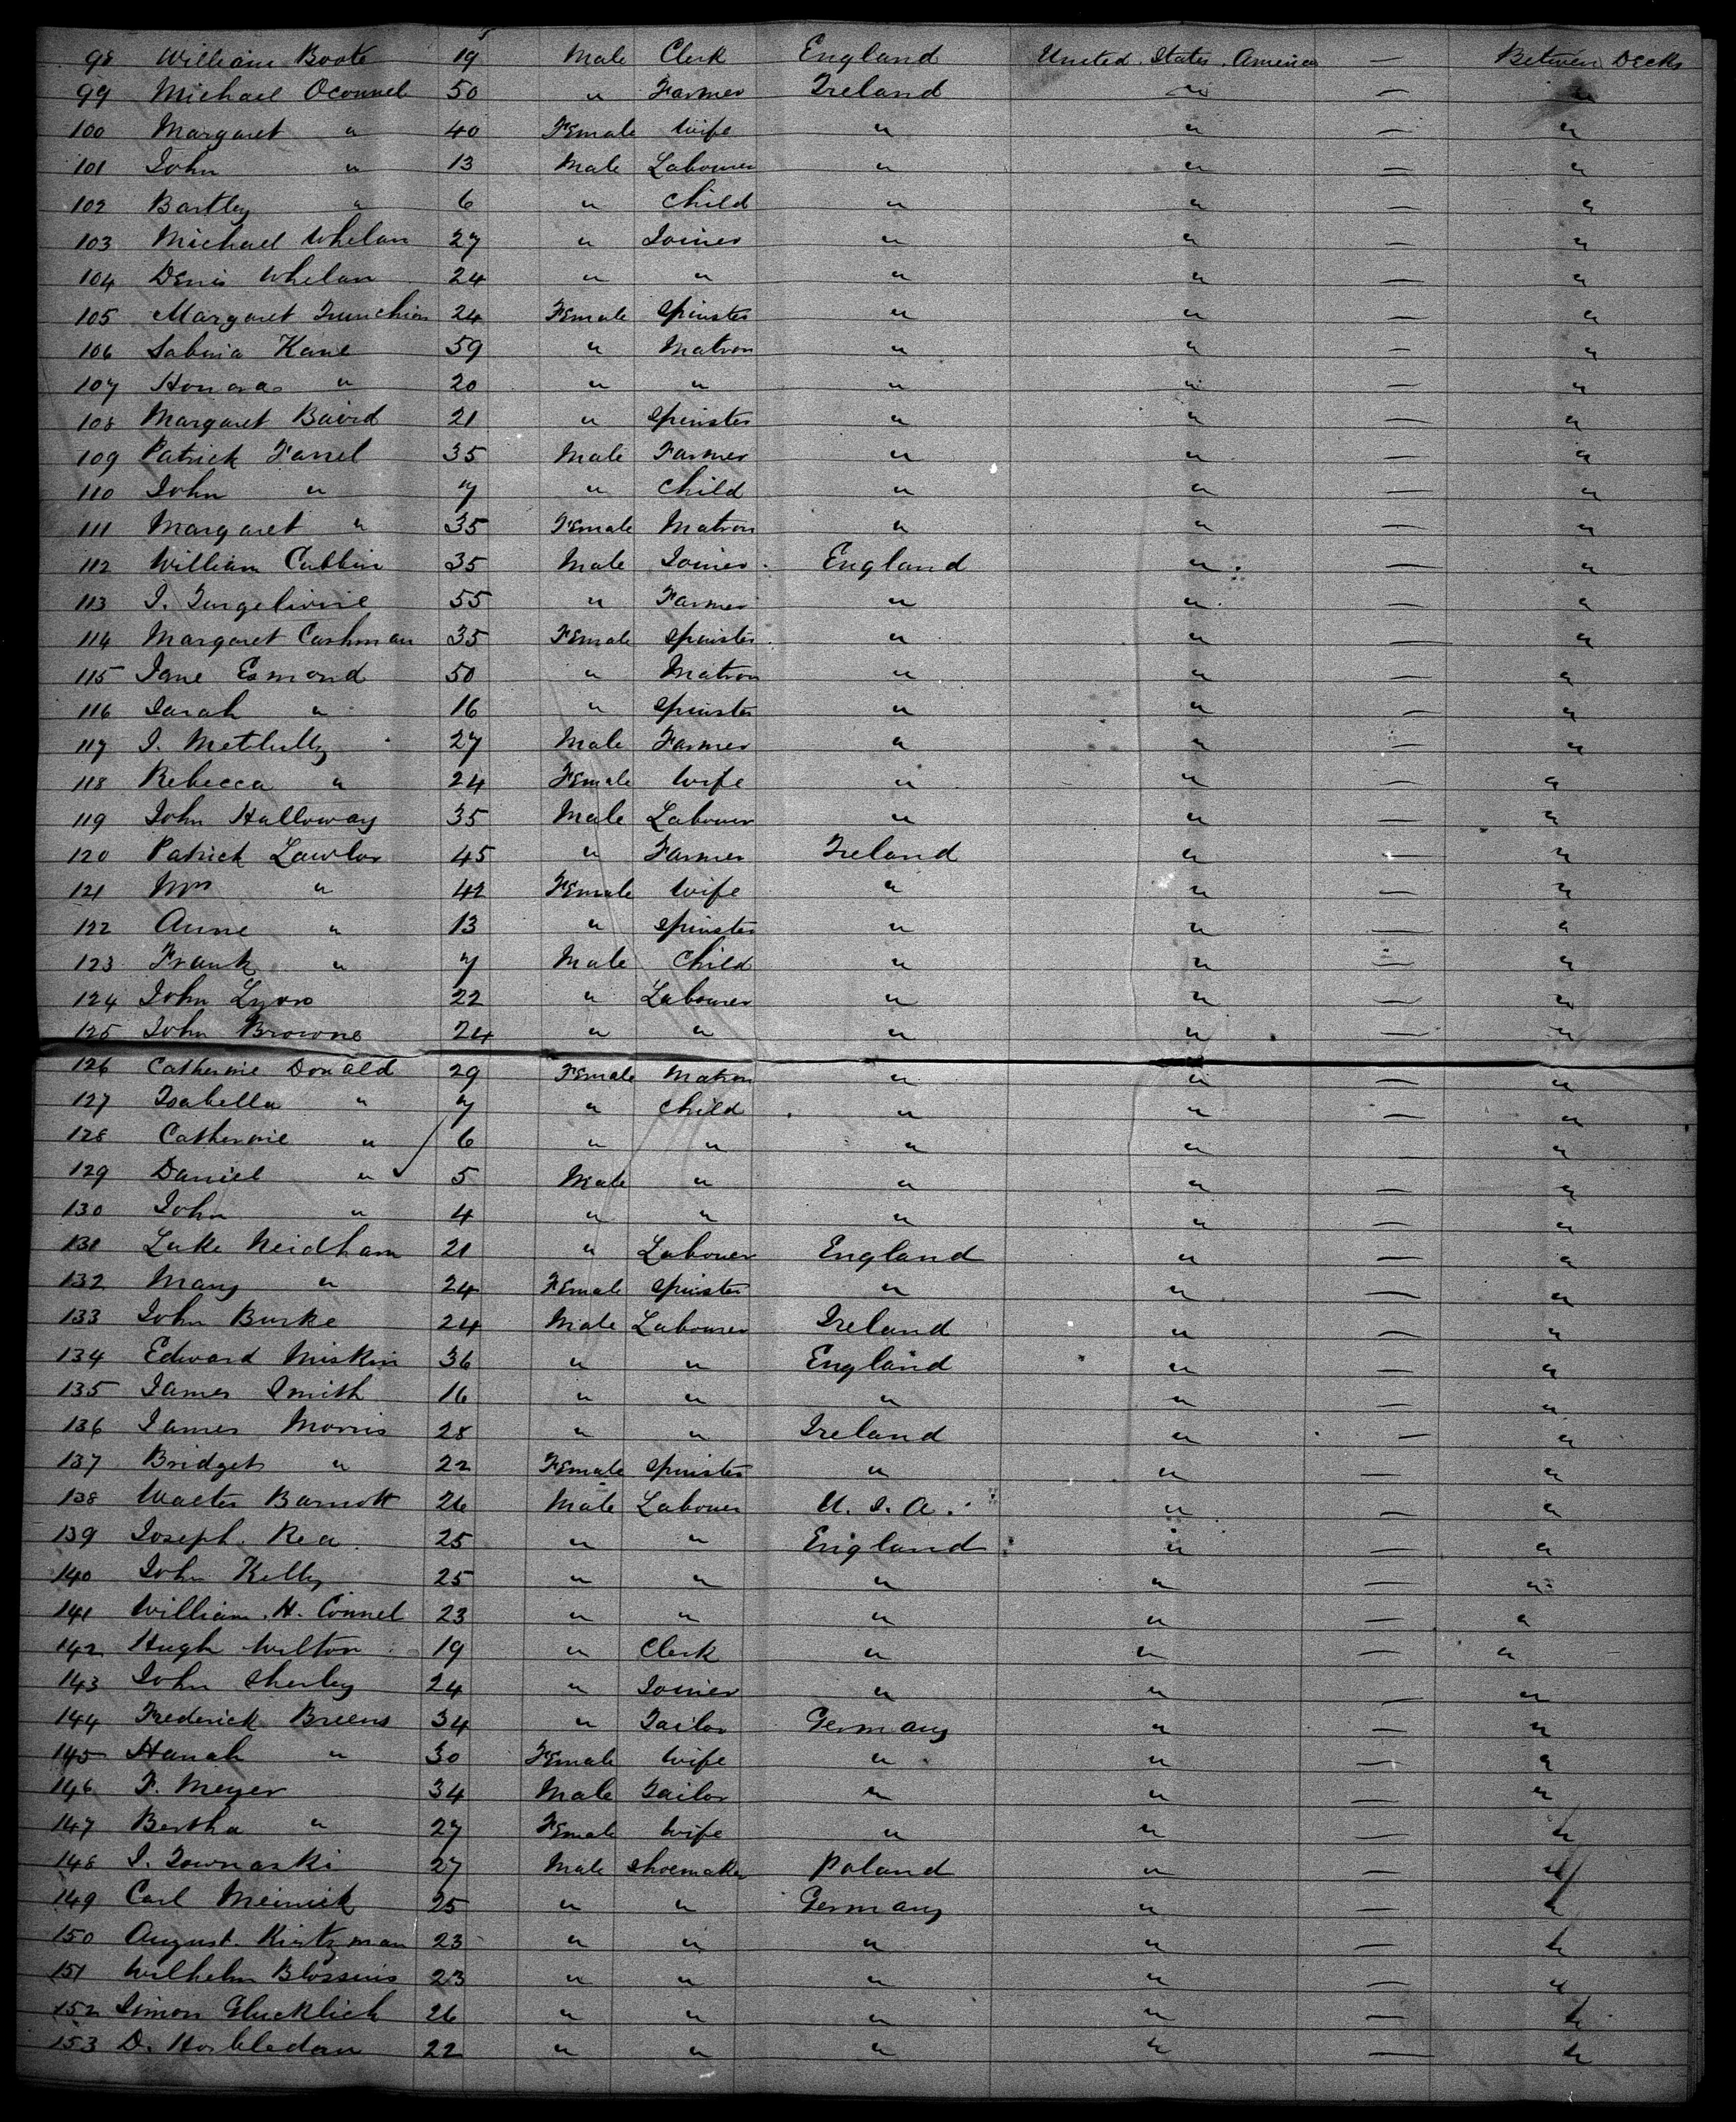 98 William Boote 19 Male Clerk England United States America — Between Decks
99 Michael Oconnel 50 " Farmer Ireland " — "
100 Margaret " 40 Female Wife " " — "
101 John " 13 Male Labourer " " — "
102 Bartley " 6 " Child " " — "
103 Michael Whelan 27 " Joiner " " — "
104 Denis Whelan 24 " " " " — "
105 Margaret 24 Female Spinster " " — "
106 Sabina Kane 59 " Matron " " — "
107 Honora " 20 " " " " — "
108 Margaret Baird 21 " Spinster " " — "
109 Patrick Farrel 35 Male Farmer " " — "
110 John " 7 " Child " " — "
111 Margaret " 35 Female Matron " " — "
112 William Cubbin 35 Male Joiner England " — "
113 J. 55 " Farmer " " — "
114 Margaret Cashman 35 Female Spinster " " — "
115 Jane Esmond 50 " Matron " " — "
116 Sarah " 16 " Spinster " " — "
117 J. 27 Male Farmer " " — "
118 Rebecca " 24 Female Wife " " — "
119 John Halloway 35 Male Labourer " " — "
120 Patrick Lawlor 45 " Farmer Ireland " — "
121 Mrs " 42 Female Wife " " — "
122 Anne " 13 " Spinster " " — "
123 Frank " 7 Male Child " " — "
124 John Lyons 22 " Labourer " " — "
125 John Browne 24 " " " " — "
126 Catherine Donald 29 Female Matron " " — "
127 Isabella " 7 " Child " " — "
128 Catherine " 6 " " " " — "
129 Daniel " 5 Male " " " — "
130 John " 4 " " " " — "
131 Luke Neidham 21 " Labourer England " — "
132 Mary " 24 Female Spinster " " — "
133 John Burke 24 Male Labourer Ireland " — "
134 Edward Miskin 36 " " England " — "
135 James Smith 16 " " " " — "
136 James Morris 28 " " Ireland " — "
137 Bridget " 22 Female Spinster " " — "
138 Walter Barnott 26 Male Labourer U.S.A. " — "
139 Joseph Rea 25 " " England " — "
140 John Kelly 25 " " " " — "
141 William H. Connel 23 " " " " — "
142 Hugh Wilton 19 " Clerk " " — "
143 John Sherley 24 " Joiner " " — "
144 Frederick Breens 34 " Tailor Germany " — "
145 Hanah " 30 Female Wife " " — "
146 F. Meyer 34 Male Tailor " " — "
147 Bertha " 27 Female Wife " " — "
148 J. 27 Male Shoemaker Poland " — "
149 Carl Meinick 25 " " Germany " — "
150 August Kirtzman 23 " " " " — "
151 Wilhelm Blossuis 23 " " " " — "
152 Simon Glucklich 26 " " " " — "
153 D. 22 " " " " — "